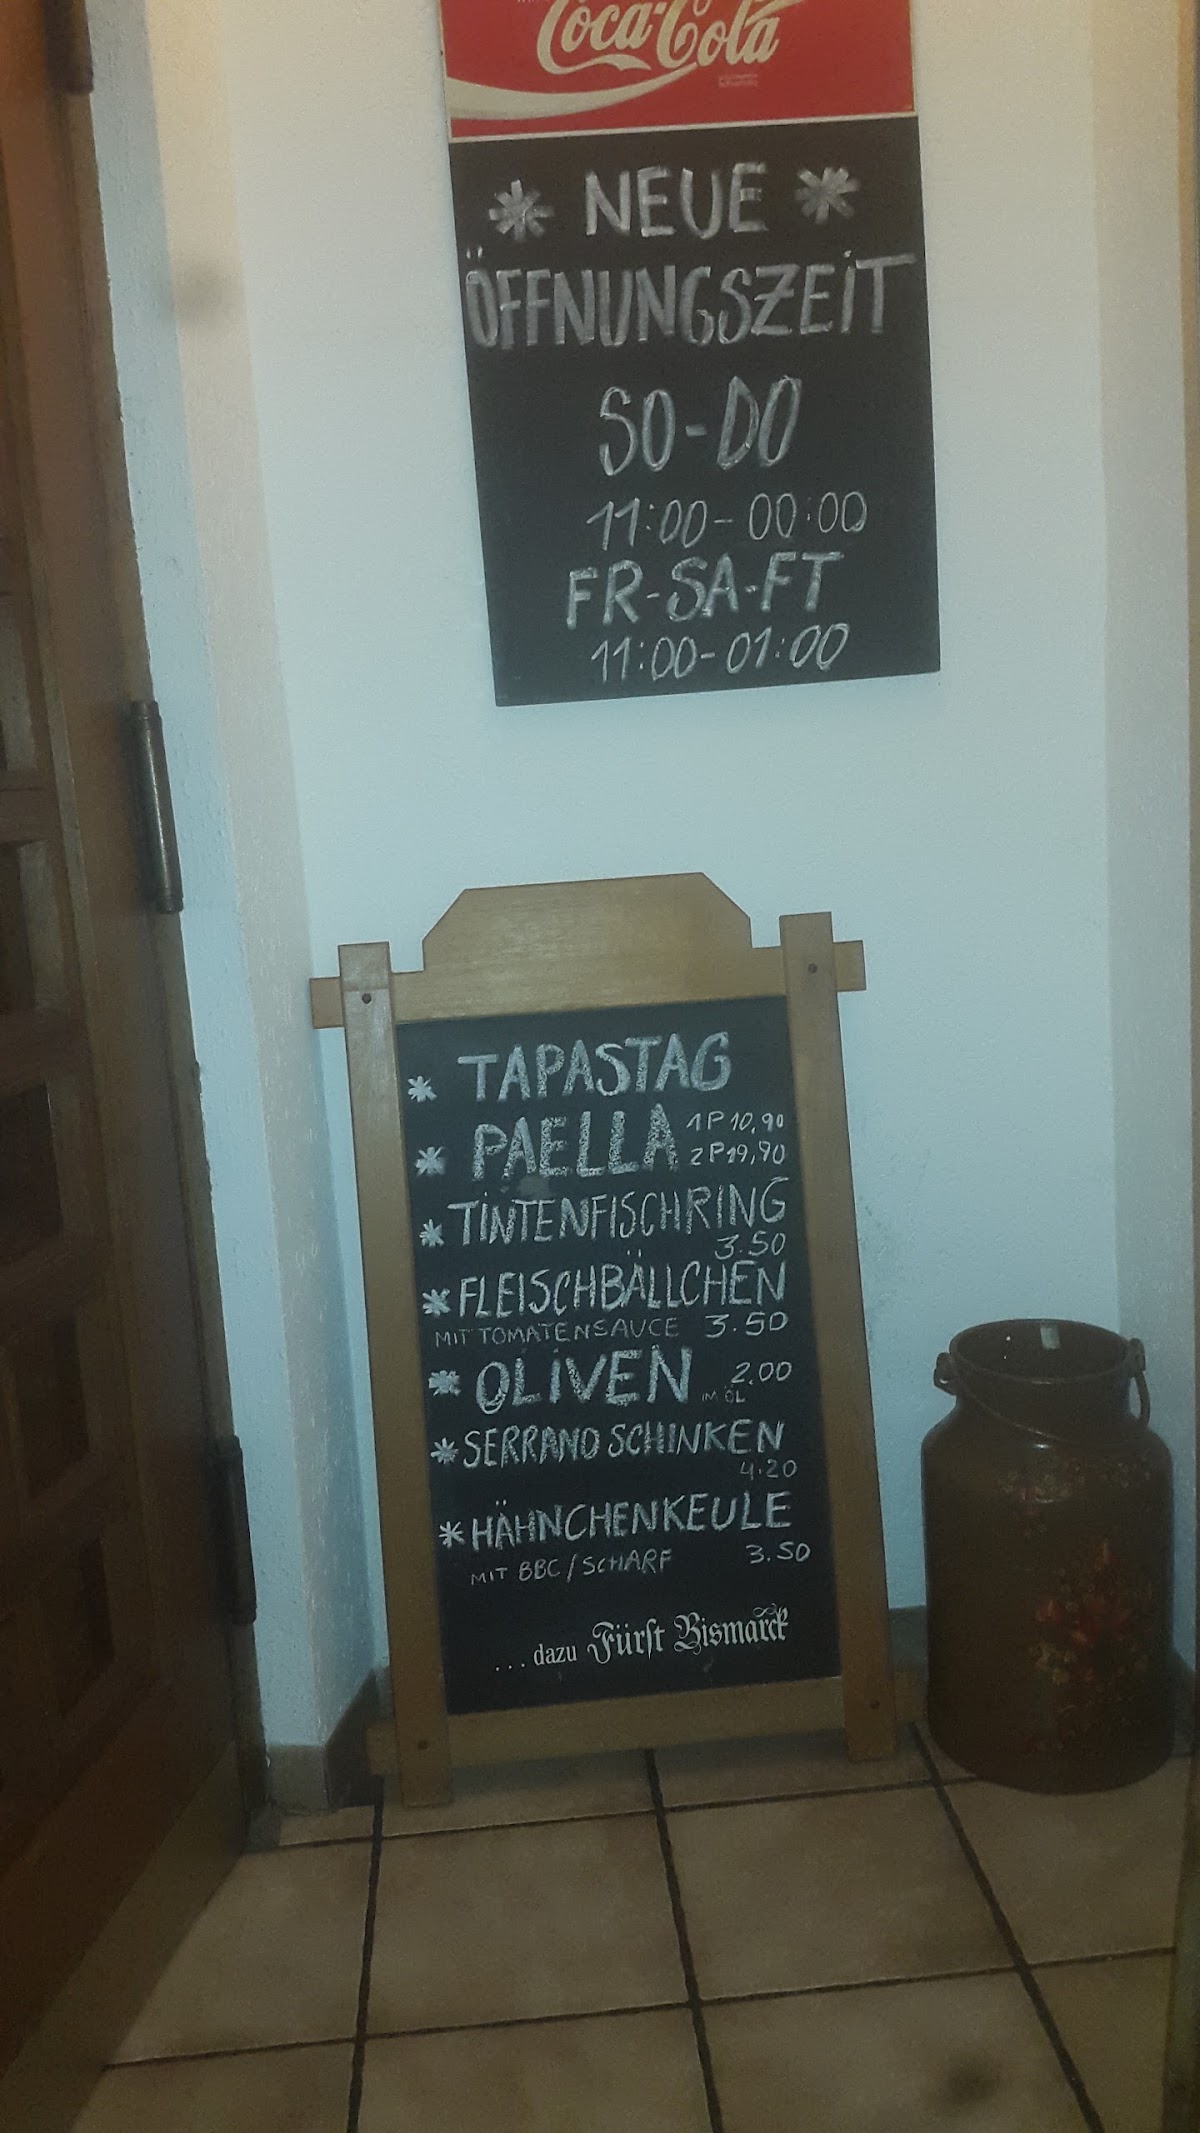 Coca-Cola
* NEUE *
ÖFFNUNGSZEIT
SO-DO
11:00-00:00
FR-SA-FT
11:00-01:00
* TAPASTAG
* PAELLA 1P 10,90
2P 19,90
* TINTENFISCHRING
3.50
* FLEISCHBÄLLCHEN
MIT TOMATENSAUCE 3.50
* OLIVEN 2.00
IM ÖL
* SERRANO SCHINKEN
4.20
* HÄHNCHENKEULE
MIT BBC/SCHARF 3.50
... dazu Fürst Bismarck